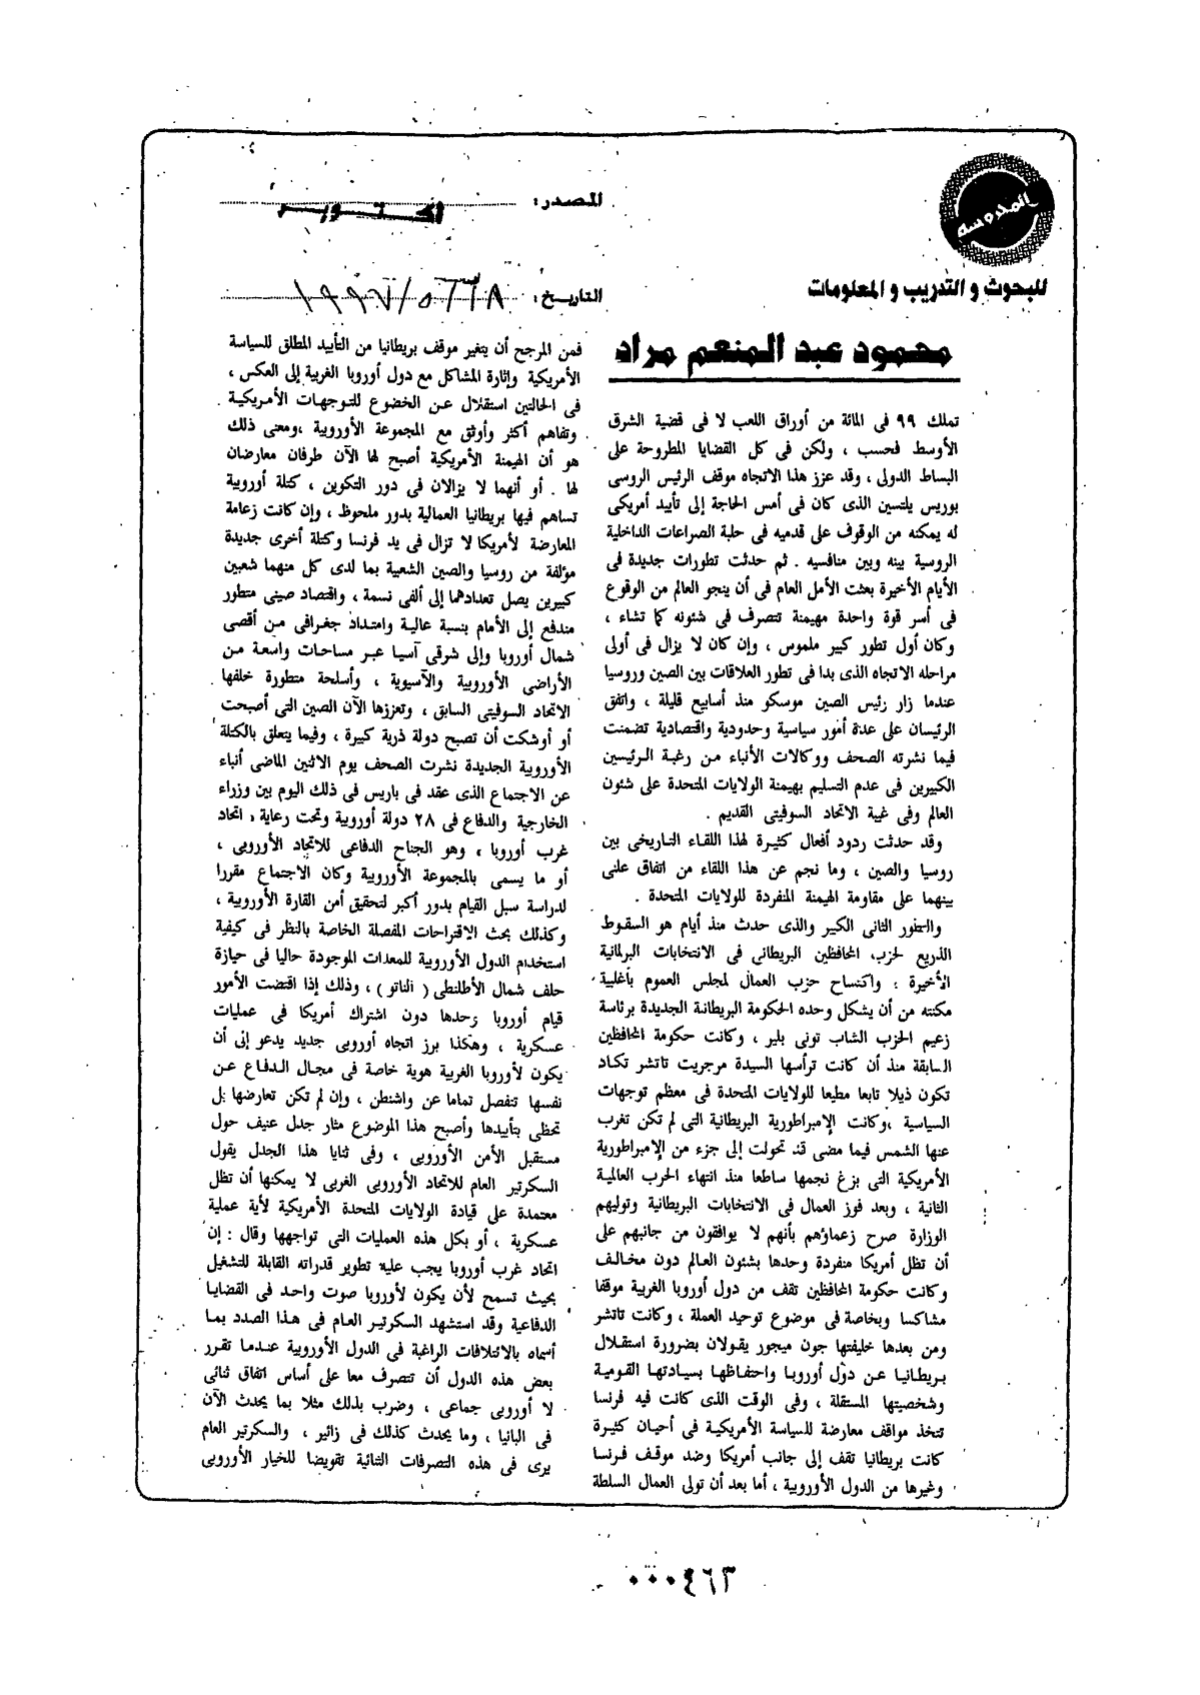 المحروسة
للبحوث و التدريب و المعلومات
المصدر:
التاريخ: ١٩٩٧/٥/٢٨
محمود عبد المنعم مراد
تملك ٩٩ فى المائة من أوراق اللعب لا فى قضية الشرق
الأوسط فحسب ، ولكن فى كل القضايا المطروحة على
البساط الدولى ، وقد عزز هذا الاتجاه موقف الرئيس الروسى
بوريس يلتسين الذى كان فى أمس الحاجة إلى تأييد أمريكى
له يمكنه من الوقوف على قدميه فى حلبة الصراعات الداخلية
الروسية بينه وبين منافسيه . ثم حدثت تطورات جديدة فى
الأيام الأخيرة بعثت الأمل العام فى أن ينجو العالم من الوقوع
فى أسر قوة واحدة مهيمنة تتصرف فى شئونه كما تشاء ،
وكان أول تطور كبير ملموس ، وإن كان لا يزال فى أولى
مراحله الاتجاه الذى بدا فى تطور العلاقات بين الصين وروسيا
عندما زار رئيس الصين موسكو منذ أسابيع قليلة ، واتفق
الرئيسان على عدة أمور سياسية وحدودية واقتصادية تضمنت
فيما نشرته الصحف ووكالات الأنباء من رغبة الرئيسين
الكبيرين فى عدم التسليم بهيمنة الولايات المتحدة على شئون
العالم وفى غيبة الاتحاد السوفيتى القديم .
وقد حدثت ردود أفعال كثيرة لهذا اللقاء التاريخى بين
روسيا والصين ، وما نجم عن هذا اللقاء من اتفاق على
بينهما على مقاومة الهيمنة المنفردة للولايات المتحدة .
والتطور الثانى الكبير والذى حدث منذ أيام هو السقوط
الذريع لحزب المحافظين البريطانى فى الانتخابات البرلمانية
الأخيرة ; واكتساح حزب العمال لمجلس العموم بأغلبية
مكنته من أن يشكل وحده الحكومة البريطانة الجديدة برئاسة
زعيم الحزب الشاب تونى بلير ، وكانت حكومة المحافظين
السابقة منذ أن كانت ترأسها السيدة مرجريت تاتشر تكاد
تكون ذيلا تابعا مطيعا للولايات المتحدة فى معظم توجهات
السياسية ،وكانت الإمبراطورية البريطانية التى لم تكن تغرب
عنها الشمس فيما مضى قد تحولت إلى جزء من الإمبراطورية
الأمريكية التى بزغ نجمها ساطعا منذ انتهاء الحرب العالمية
الثانية ، وبعد فوز العمال فى الانتخابات البريطانية وتوليهم
الوزارة صرح زعماؤهم بأنهم لا يوافقون من جانبهم على
أن تظل أمريكا منفردة وحدها بشئون العالم دون مخالف
وكانت حكومة المحافظين تقف من دول أوروبا الغربية موقفا
مشاكسا وبخاصة فى موضوع توحيد العملة ، وكانت تاتشر
ومن بعدها خليفتها جون ميجور يقولان بضرورة استقلال
بريطانيا عن دول أوروبا واحتفاظها بسيادتها القومية
وشخصيتها المستقلة ، وفى الوقت الذى كانت فيه فرنسا
تتخذ مواقف معارضة للسياسة الأمريكية فى أحيان كثيرة
كانت بريطانيا تقف إلى جانب أمريكا وضد موقف فرنسا
وغيرها من الدول الأوروبية ، أما بعد أن تولى العمال السلطة
فمن المرجح أن يتغير موقف بريطانيا من التأييد المطلق للسياسة
الأمريكية وإثارة المشاكل مع دول أوروبا الغربية إلى العكس ،
فى الحالتين استقلال عن الخضوع للتوجهات الأمريكية
وتفاهم أكثر وأوثق مع المجموعة الأوروبية ،ومعنى ذلك
هو أن الهيمنة الأمريكية أصبح لها الآن طرفان معارضان
لها . أو أنهما لا يزالان فى دور التكوين ، كتلة أوروبية
تساهم فيها بريطانيا العمالية بدور ملحوظ ، وإن كانت زعامة
المعارضة لأمريكا لا تزال فى يد فرنسا وكتلة أخرى جديدة
مؤلفة من روسيا والصين الشعبية بما لدى كل منهما شعبين
كبيرين يصل تعدادهما إلى ألفى نسمة ، واقتصاد صينى متطور
مندفع إلى الأمام بنسبة عالية وامتداد جغرافى من أقصى
شمال أوروبا وإلى شرقى آسيا عبر مساحات واسعة من
الأراضى الأوروبية والآسيوية ، وأسلحة متطورة خلفها
الاتحاد السوفيتى السابق ، وتعززها الآن الصين التى أصبحت
أو أوشكت أن تصبح دولة ذرية كبيرة ، وفيما يتعلق بالكتلة
الأوروبية الجديدة نشرت الصحف يوم الاثنين الماضى أنباء
عن الاجتماع الذى عقد فى باريس فى ذلك اليوم بين وزراء
الخارجية والدفاع فى ٢٨ دولة أوروبية وتحت رعاية ، اتحاد
غرب أوروبا ، وهو الجناح الدفاعى للاتحاد الأوروبى ،
أو ما يسمى بالمجموعة الأوروبية وكان الاجتماع مقررا
لدراسة سبل القيام بدور أكبر لتحقيق أمن القارة الأوروبية ،
وكذلك بحث الاقتراحات المفصلة الخاصة بالنظر فى كيفية
استخدام الدول الأوروبية للمعدات الموجودة حاليا فى حيازة
حلف شمال الأطلنطى ( الناتو ) ، وذلك إذا اقتضت الأمور
قيام أوروبا وحدها دون اشتراك أمريكا فى عمليات
عسكرية ، وهكذا برز اتجاه أوروبى جديد يدعو إلى أن
يكون لأوروبا الغربية هوية خاصة فى مجال الدفاع عن
نفسها تنفصل تماما عن واشنطن ، وإن لم تكن تعارضها بل
تحظى بتأييدها وأصبح هذا الموضوع مثار جدل عنيف حول
مستقبل الأمن الأوروبى ، وفى ثنايا هذا الجدل يقول
السكرتير العام للاتحاد الأوروبى الغربى لا يمكنها أن تظل
معتمدة على قيادة الولايات المتحدة الأمريكية لأية عملية
عسكرية ، أو بكل هذه العمليات التى تواجهها وقال : إن
اتحاد غرب أوروبا يجب عليه تطوير قدراته القابلة للتشغيل
بحيث تسمح لأن يكون لأوروبا صوت واحد فى القضايا
الدفاعية وقد استشهد السكرتير العام فى هذا الصدد بما
أسماه بالائتلافات الراغبة فى الدول الأوروبية عندما تقرر
بعض هذه الدول أن تتصرف معا على أساس اتفاق ثنائى
لا أوروبى جماعى ، وضرب بذلك مثلا بما يحدث الآن
فى البانيا ، وما يحدث كذلك فى زائير ، والسكرتير العام
يرى فى هذه التصرفات الثنائية تقويضا للخيار الأوروبى
٠٠٠٤٦٣